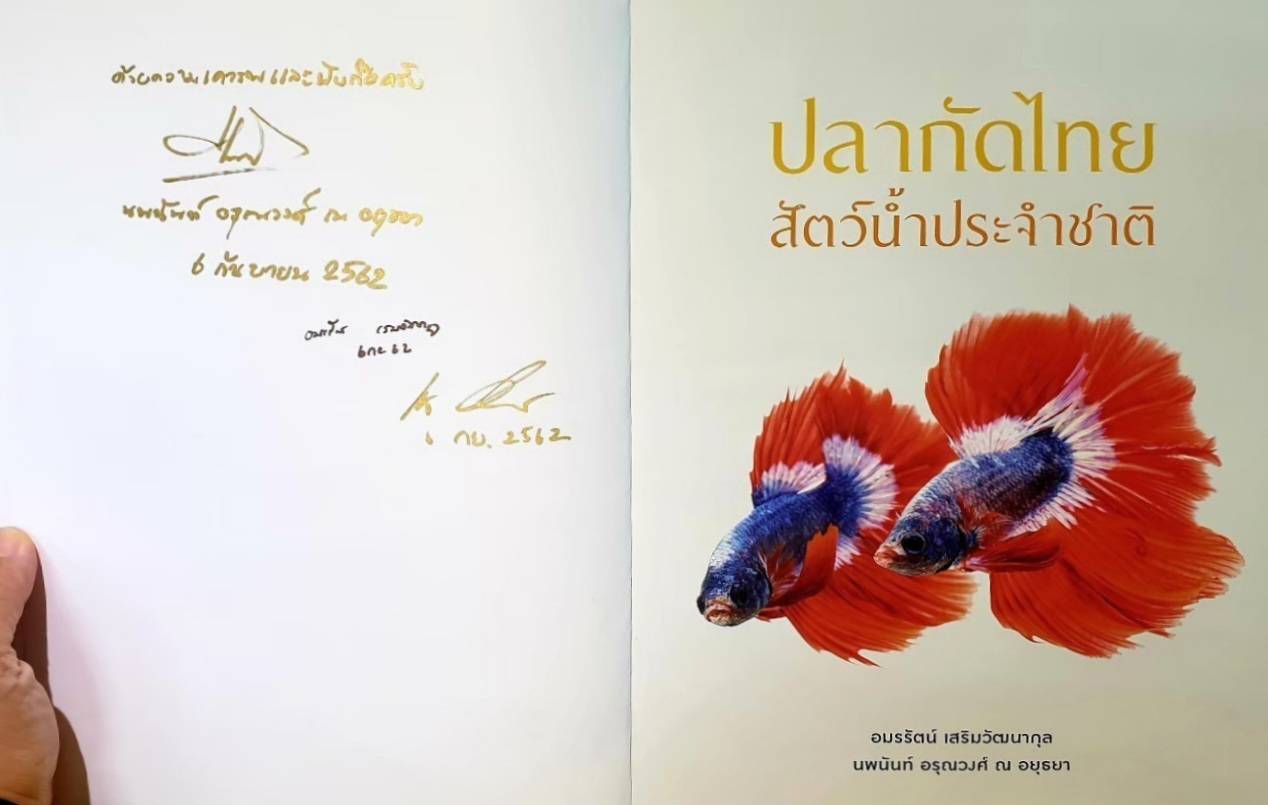 ด้วยความเคารพและนับถือครับ
นพนันท์ อรุณวงศ์ ณ อยุธยา
6 กันยายน 2562
6 กย 62
6 กย. 2562
ปลากัดไทย
สัตว์น้ำประจำชาติ
อมรรัตน์ เสริมวัฒนากุล
นพนันท์ อรุณวงศ์ ณ อยุธยา